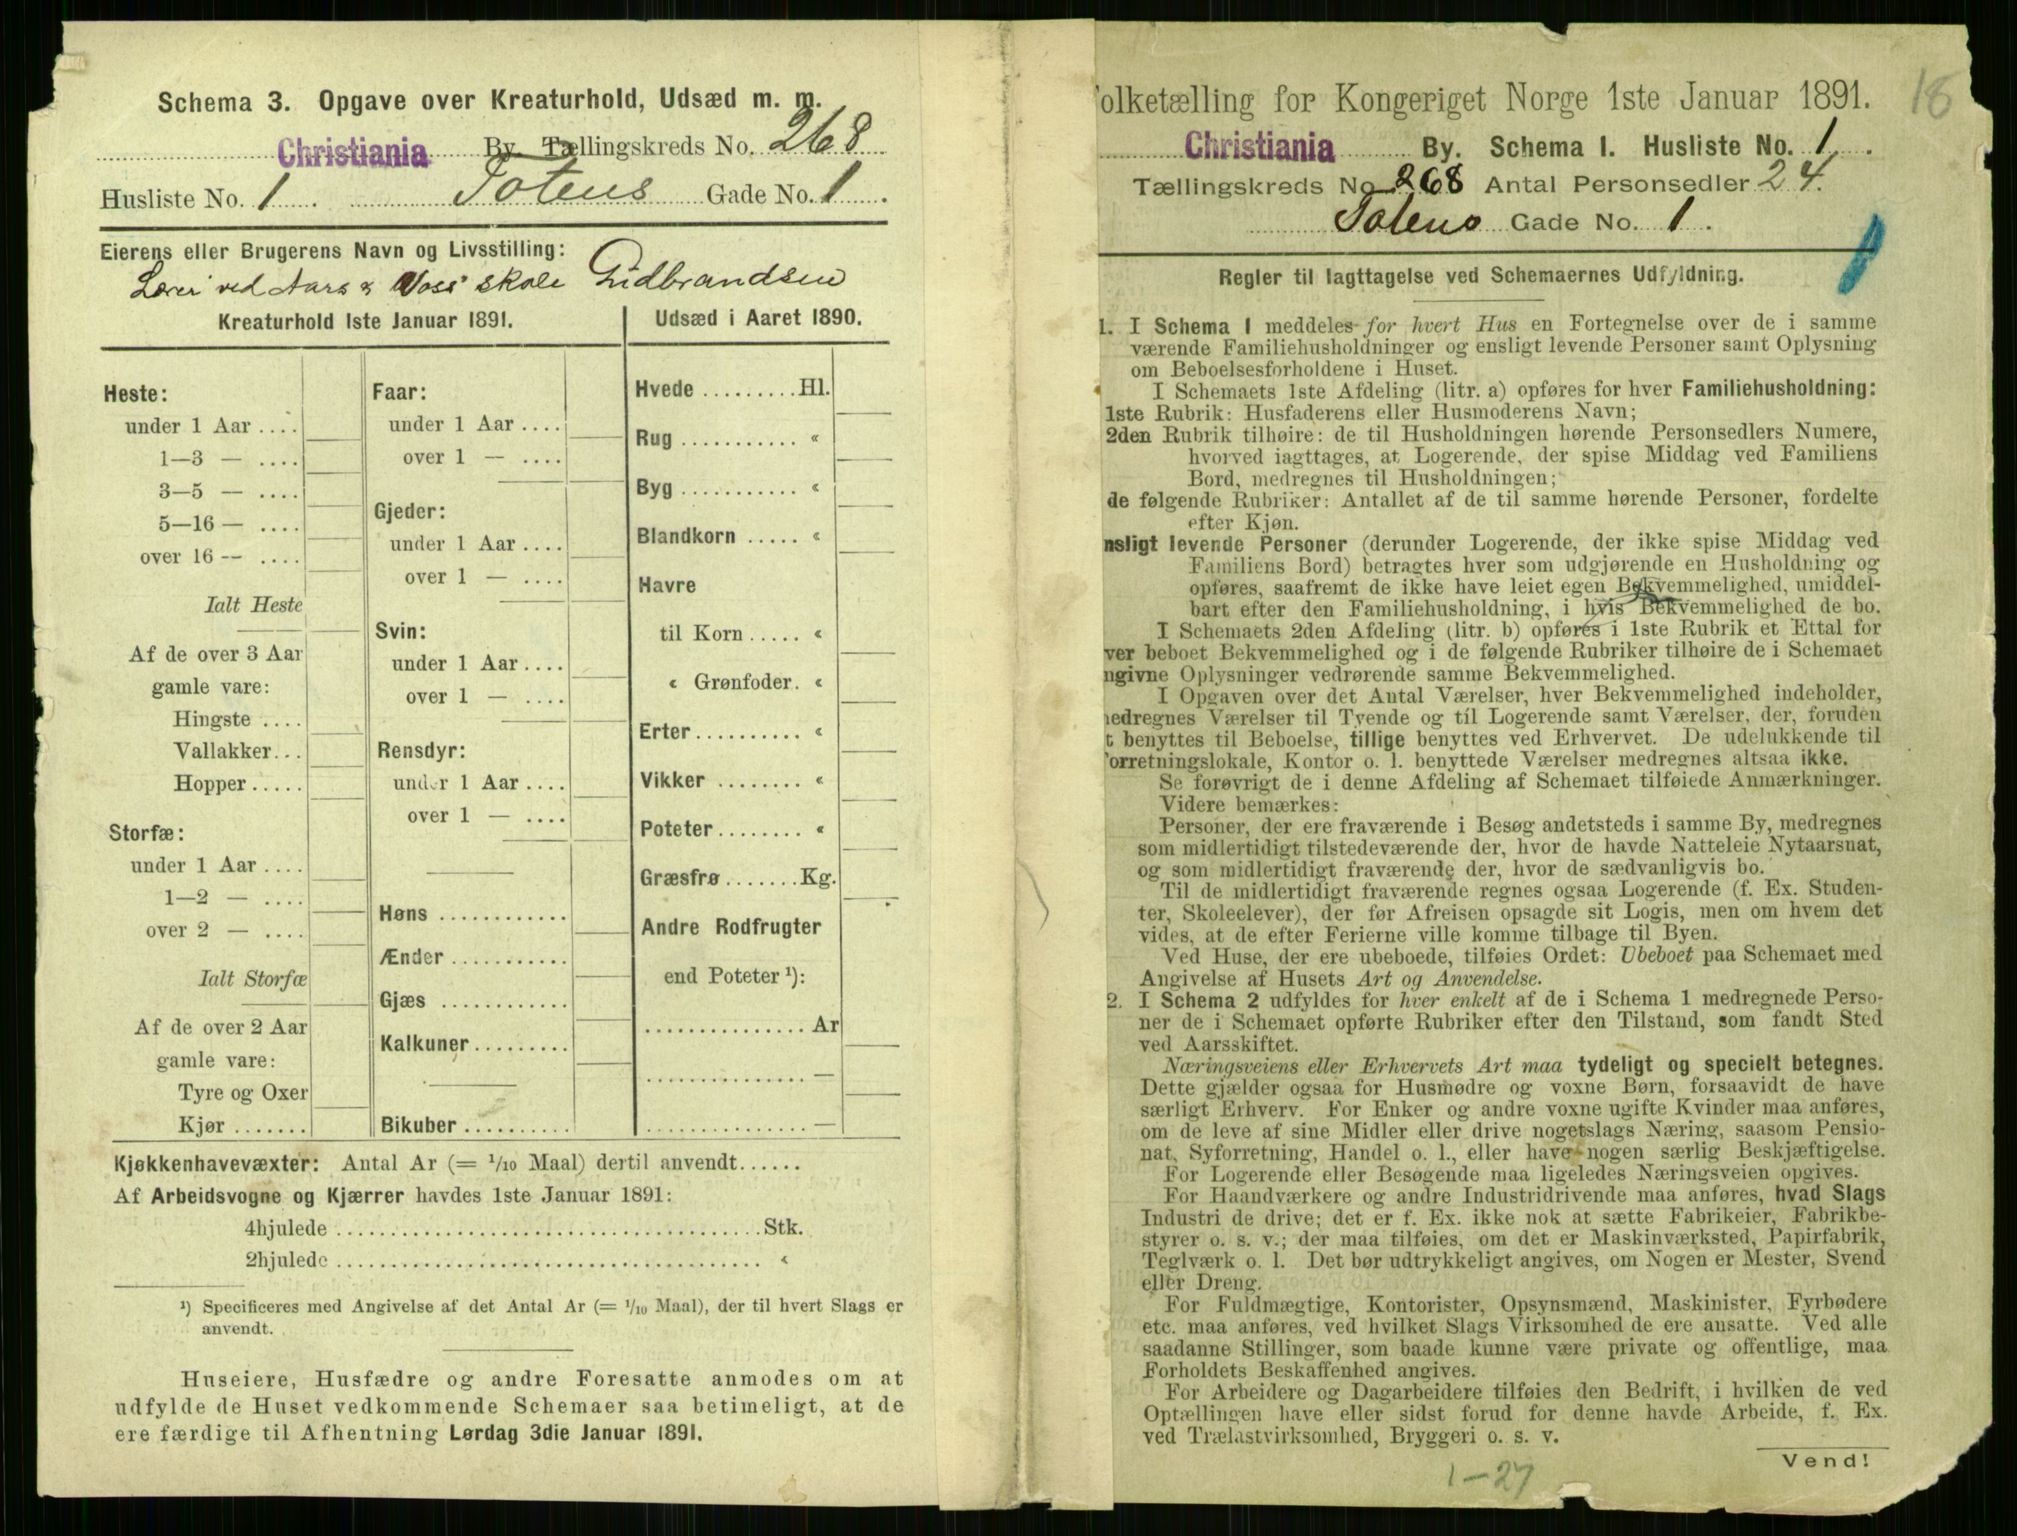 Schema 3. Opgave over Kreaturhold, Udsæd m. m.
Christiania By. Tællingskreds No. 268
Husliste No. 1. Totens Gade No. 1.
Eierens eller Brugerens Navn og Livsstilling:
Lærer ved Aars & Voss' skole Gudbrandsen
Kreaturhold 1ste Januar 1891.
Heste:
under 1 Aar ....
1—3 — ....
3—5 — ....
5—16 — ....
over 16 — ....
Ialt Heste
Af de over 3 Aar
gamle vare:
Hingste ....
Vallakker...
Hopper.....
Storfæ:
under 1 Aar ....
1—2 — ....
over 2 — ....
Ialt Storfæ
Af de over 2 Aar
gamle vare:
Tyre og Oxer
Kjør .......
Faar:
under 1 Aar ....
over 1 — ....
Gjeder:
under 1 Aar ....
over 1 — ....
Svin:
under 1 Aar ....
over 1 — ....
Rensdyr:
under 1 Aar ....
over 1 — ....
Høns ............
Ænder ...........
Gjæs ............
Kalkuner.........
Bikuber ..........
Udsæd i Aaret 1890.
Hvede .........Hl.
Rug ........... «
Byg ........... «
Blandkorn ..... «
Havre
til Korn ..... «
« Grønfoder. «
Erter.......... «
Vikker ........ «
Poteter........ «
Græsfrø .......Kg.
Andre Rodfrugter
end Poteter ¹):
............... Ar
............... —
............... —
Kjøkkenhavevæxter: Antal Ar (= 1/10 Maal) dertil anvendt......
Af Arbeidsvogne og Kjærrer havdes 1ste Januar 1891:
4hjulede ....................................... Stk.
2hjulede ....................................... «
¹) Specificeres med Angivelse af det Antal Ar (= 1/10 Maal), der til hvert Slags er
anvendt.
Huseiere, Husfædre og andre Foresatte anmodes om at
udfylde de Huset vedkommende Schemaer saa betimeligt, at de
ere færdige til Afhentning Lørdag 3die Januar 1891.
18
olketælling for Kongeriget Norge 1ste Januar 1891.
Christiania By. Schema I. Husliste No. 1.
Tællingskreds No 268 Antal Personsedler 24.
Totens Gade No. 1.
Regler til Iagttagelse ved Schemaernes Udfyldning.
1. I Schema 1 meddeles for hvert Hus en Fortegnelse over de i samme
værende Familiehusholdninger og ensligt levende Personer samt Oplysning
om Beboelsesforholdene i Huset.
I Schemaets 1ste Afdeling (litr. a) opføres for hver Familiehusholdning:
1ste Rubrik: Husfaderens eller Husmoderens Navn;
2den Rubrik tilhøire: de til Husholdningen hørende Personsedlers Numere,
hvorved iagttages, at Logerende, der spise Middag ved Familiens
Bord, medregnes til Husholdningen;
de følgende Rubriker: Antallet af de til samme hørende Personer, fordelte
efter Kjøn.
nsligt levende Personer (derunder Logerende, der ikke spise Middag ved
Familiens Bord) betragtes hver som udgjørende en Husholdning og
opføres, saafremt de ikke have leiet egen Bekvemmelighed, umiddel-
bart efter den Familiehusholdning, i hvis Bekvemmelighed de bo.
I Schemaets 2den Afdeling (litr. b) opføres i 1ste Rubrik et Ettal for
ver beboet Bekvemmelighed og i de følgende Rubriker tilhøire de i Schemaet
ngivne Oplysninger vedrørende samme Bekvemmelighed.
I Opgaven over det Antal Værelser, hver Bekvemmelighed indeholder,
medregnes Værelser til Tyende og til Logerende samt Værelser, der, foruden
t benyttes til Beboelse, tillige benyttes ved Erhvervet. De udelukkende til
orretningslokale, Kontor o. l. benyttede Værelser medregnes altsaa ikke.
Se forøvrigt de i denne Afdeling af Schemaet tilføiede Anmærkninger.
Videre bemærkes:
Personer, der ere fraværende i Besøg andetsteds i samme By, medregnes
som midlertidigt tilstedeværende der, hvor de havde Natteleie Nytaarsnat,
og som midlertidigt fraværende der, hvor de sædvanligvis bo.
Til de midlertidigt fraværende regnes ogsaa Logerende (f. Ex. Studen-
ter, Skoleelever), der før Afreisen opsagde sit Logis, men om hvem det
vides, at de efter Ferierne ville komme tilbage til Byen.
Ved Huse, der ere ubeboede, tilføies Ordet: Ubeboet paa Schemaet med
Angivelse af Husets Art og Anvendelse.
2. I Schema 2 udfyldes for hver enkelt af de i Schema 1 medregnede Perso-
ner de i Schemaet opførte Rubriker efter den Tilstand, som fandt Sted
ved Aarsskiftet.
Næringsveiens eller Erhvervets Art maa tydeligt og specielt betegnes.
Dette gjælder ogsaa for Husmødre og voxne Børn, forsaavidt de have
særligt Erhverv. For Enker og andre voxne ugifte Kvinder maa anføres,
om de leve af sine Midler eller drive nogetslags Næring, saasom Pensio-
nat, Syforretning, Handel o. l., eller have nogen særlig Beskjæftigelse.
For Logerende eller Besøgende maa ligeledes Næringsveien opgives.
For Haandværkere og andre Industridrivende maa anføres, hvad Slags
Industri de drive; det er f. Ex. ikke nok at sætte Fabrikeier, Fabrikbe-
styrer o. s. v.; der maa tilføies, om det er Maskinværksted, Papirfabrik,
Teglværk o. l. Det bør udtrykkeligt angives, om Nogen er Mester, Svend
eller Dreng.
For Fuldmægtige, Kontorister, Opsynsmænd, Maskinister, Fyrbødere
etc. maa anføres, ved hvilket Slags Virksomhed de ere ansatte. Ved alle
saadanne Stillinger, som baade kunne være private og offentlige, maa
Forholdets Beskaffenhed angives.
For Arbeidere og Dagarbeidere tilføies den Bedrift, i hvilken de ved
Optællingen have eller sidst forud for denne havde Arbeide, f. Ex.
ved Trælastvirksomhed, Bryggeri o. s. v.
Vend!
1—27